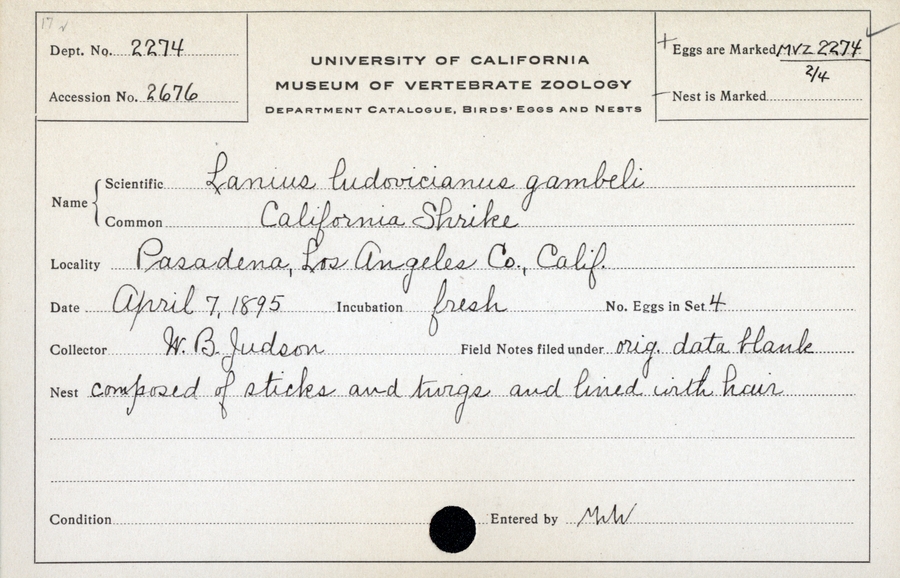 17
Dept. No. 2274
Accession No. 2676
UNIVERSITY OF CALIFORNIA
MUSEUM OF VERTEBRATE ZOOLOGY
DEPARTMENT CATALOGUE, BIRDS' EGGS AND NESTS
+ Eggs are Marked MVZ 2274
2/4
Nest is Marked
Name { Scientific Lanius ludovicianus gambeli
Common California Shrike
Locality Pasadena, Los Angeles Co., Calif.
Date April 7, 1895 Incubation fresh No. Eggs in Set 4
Collector W. B. Judson Field Notes filed under orig. data blank
Nest composed of sticks and twigs and lined with hair
Condition Entered by